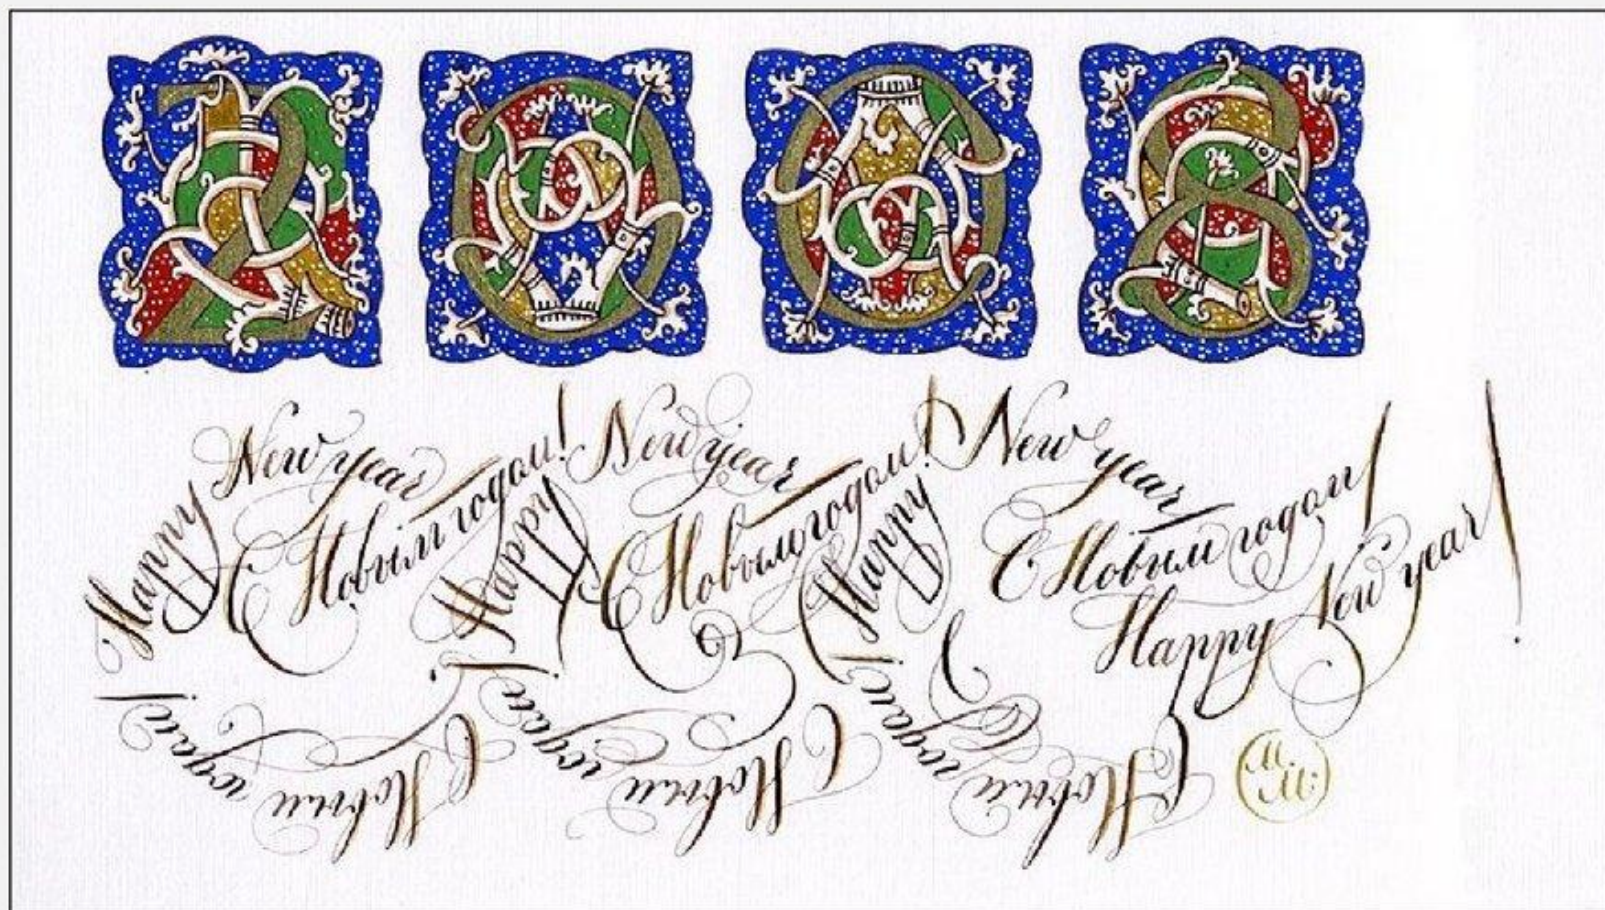 2008
Happy New year
С Новым годом!
Happy New year
С Новым годом!
Happy New year
С Новым годом!
Happy New year!
С Новым годом!
С Новым годом!
С Новым годом!
М.М.